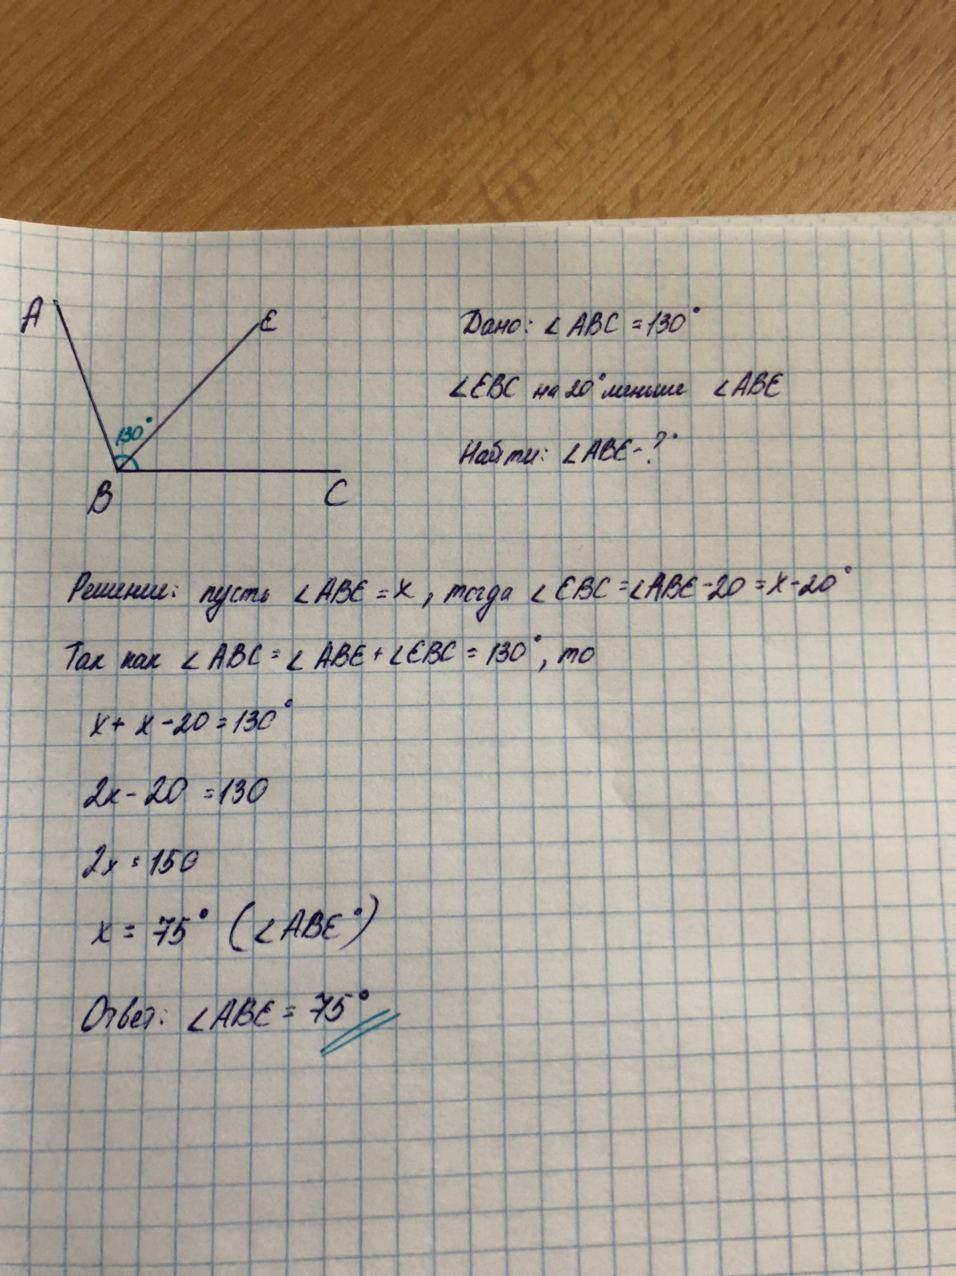 A
E
130°
B
C
Дано: ∠ABC = 130°
∠EBC на 20° меньше ∠ABE
Найти: ∠ABE - ?°
Решение: пусть ∠ABE = x, тогда ∠EBC = ∠ABE - 20 = x - 20°
Так как ∠ABC = ∠ABE + ∠EBC = 130°, то
x + x - 20 = 130°
2x - 20 = 130
2x = 150
x = 75° (∠ABE°)
Ответ: ∠ABE = 75°